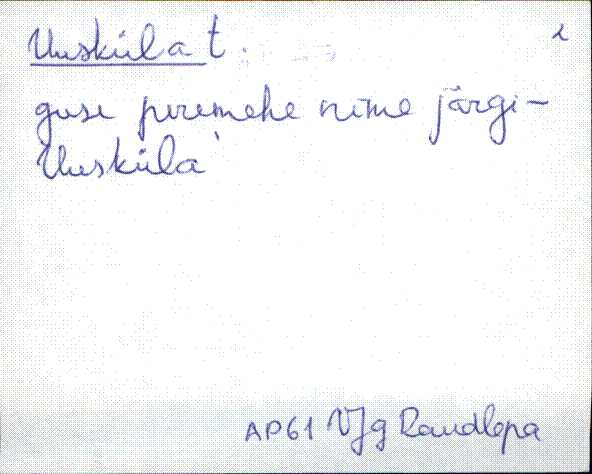 Uusküla t. 2
guse peremehe nime järgi -
Uusküla
AP61 VJg Raudlepa